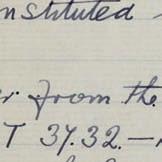 nstituted
from the
T 37.32.—